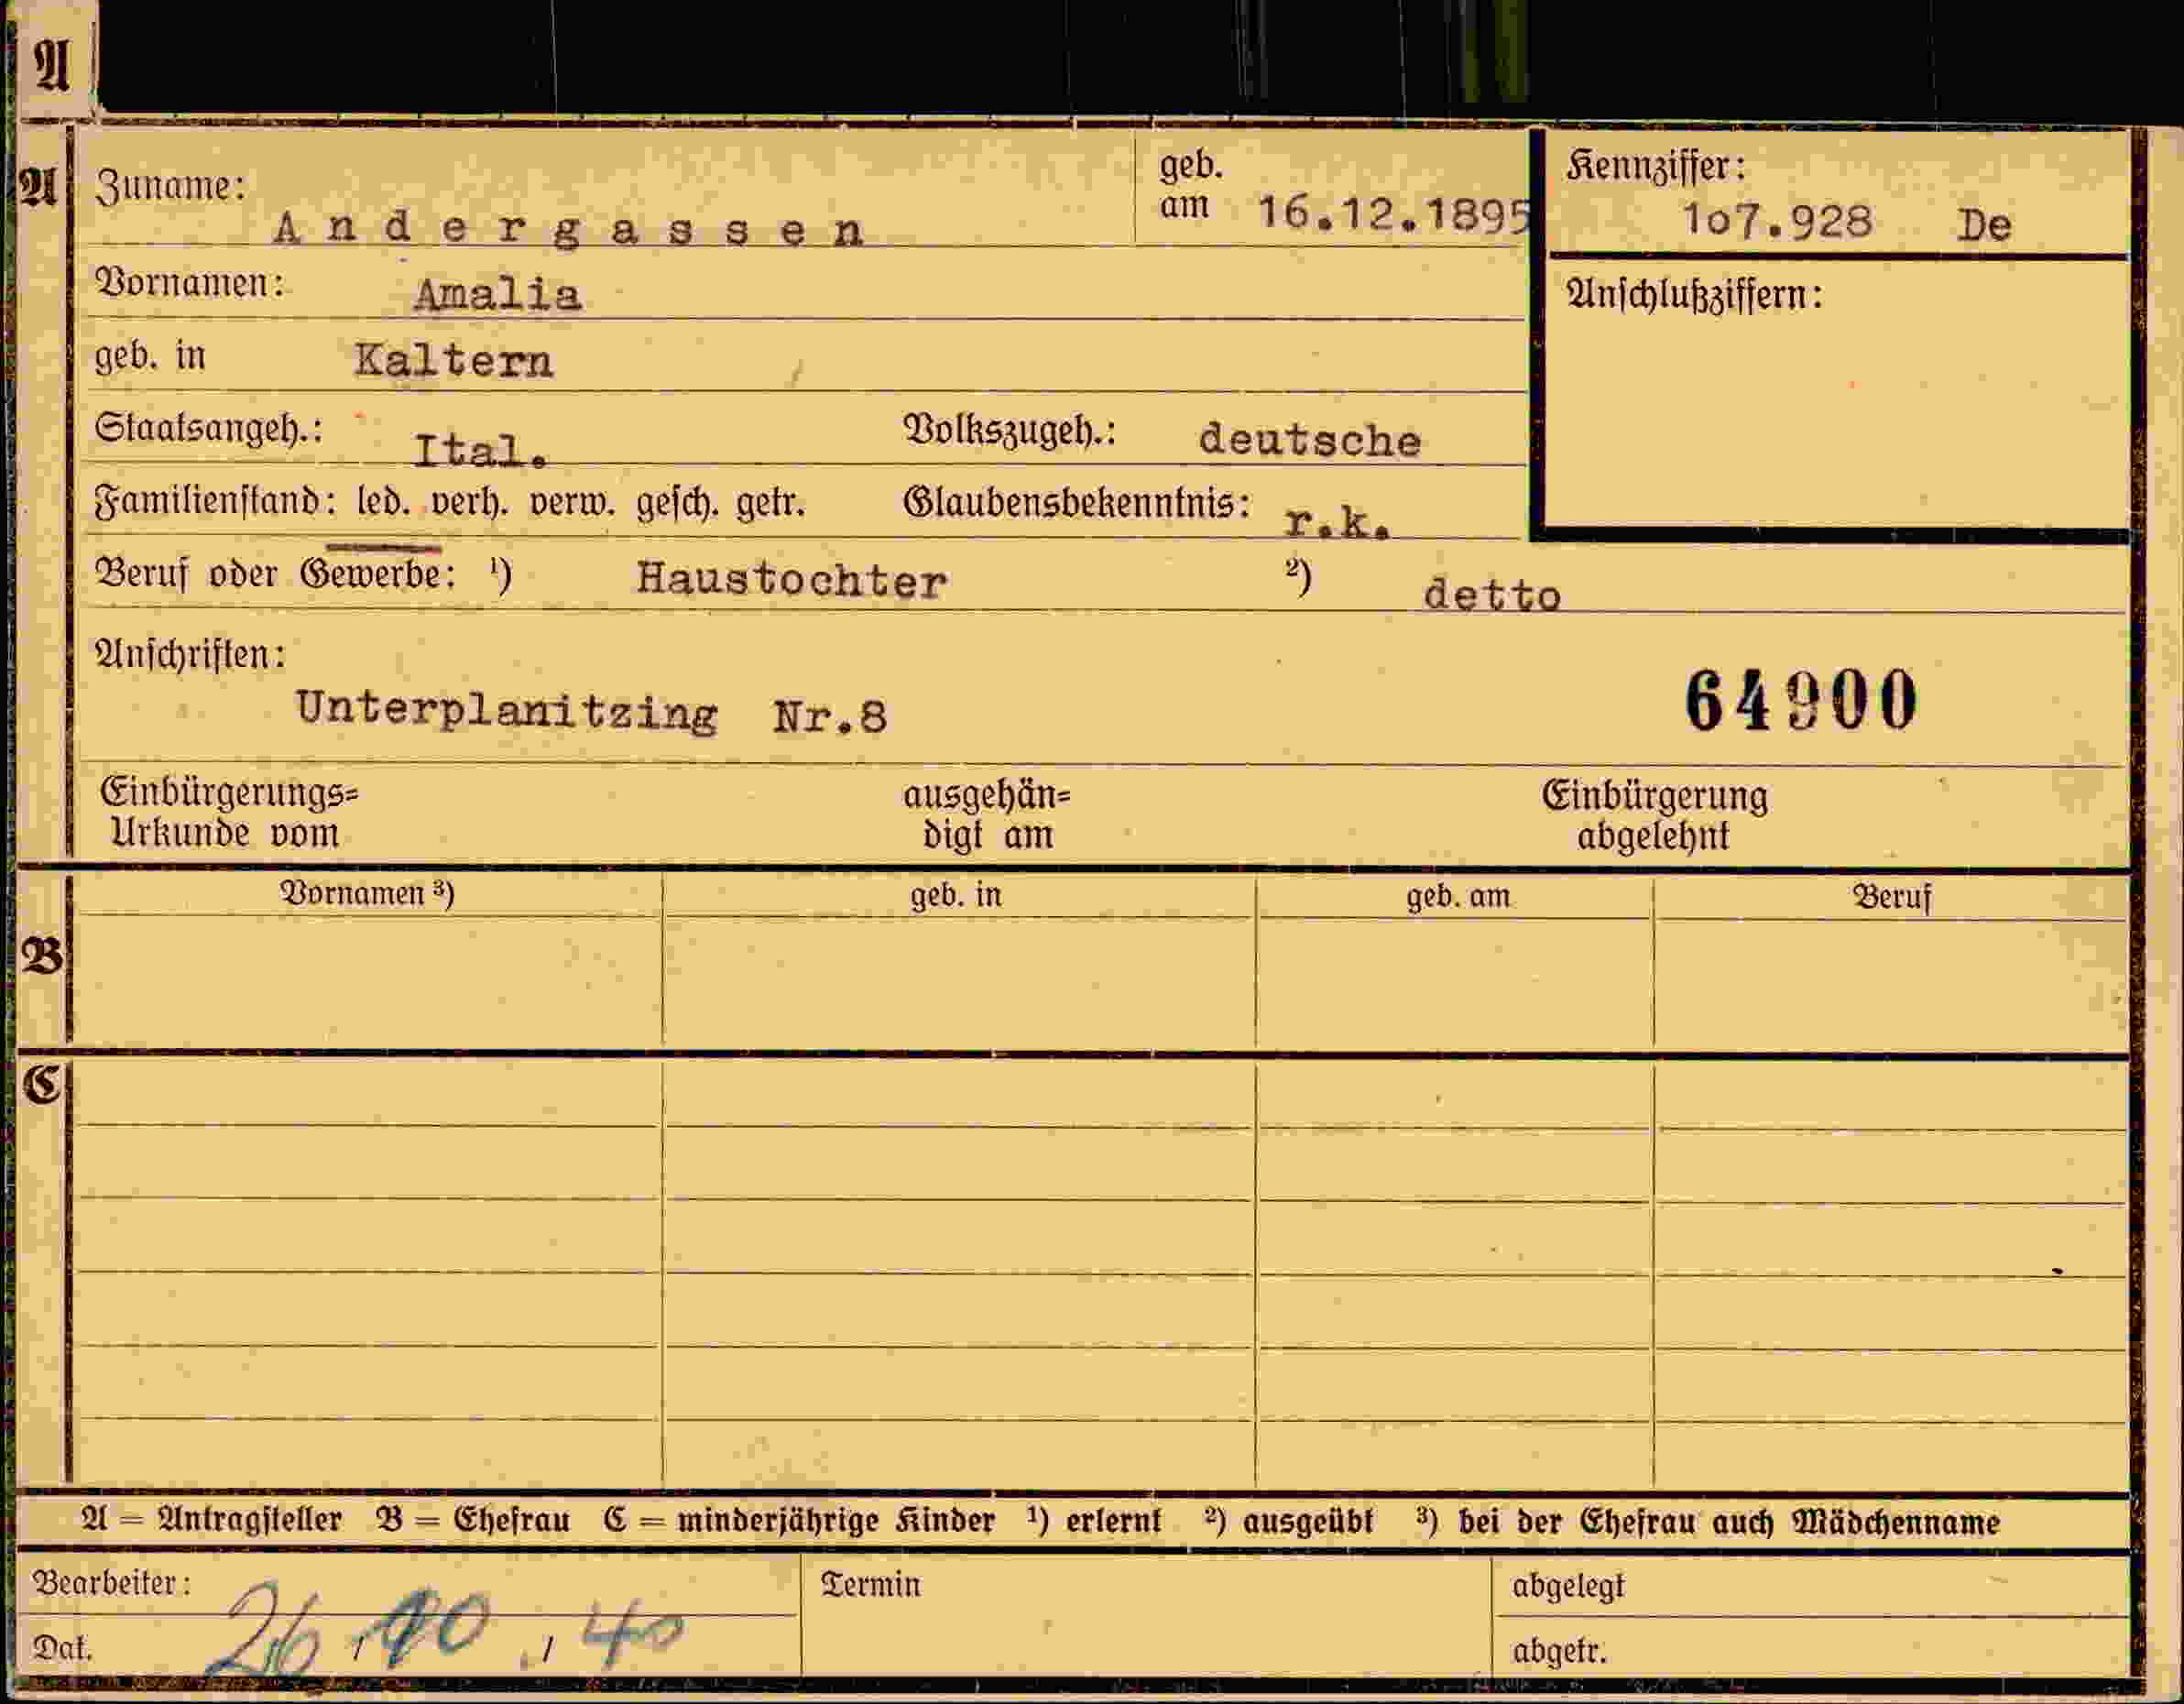 A
A
Zuname: Andergassen geb. am 16.12.1895
Kennziffer: 1o7.928 De
Vornamen: Amalia
Anschlußziffern:
geb. in Kaltern
Staatsangeh.: Ital. Volkszugeh.: deutsche
Familienstand: led. verh. verw. gesch. getr. Glaubensbekenntnis: r.k.
Beruf oder Gewerbe: ¹) Haustochter ²) detto
Anschriften:
Unterplanitzing Nr.8
64900
Einbürgerungs= ausgehän= Einbürgerung
Urkunde vom digt am abgelehnt
Vornamen ³) geb. in geb. am Beruf
B
C
A = Antragsteller B = Ehefrau C = minderjährige Kinder ¹) erlernt ²) ausgeübt ³) bei der Ehefrau auch Mädchenname
Bearbeiter: Termin abgelegt
Dat. 26/10./40 abgetr.